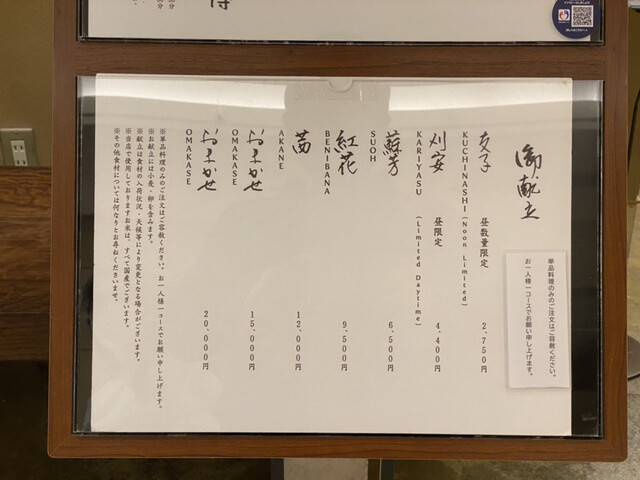 御献立
単品料理のみのご注文はご容赦ください。
お一人様一コースでお願い申し上げます。
支子 昼数量限定 2,750円
KUCHINASHI (Noon Limited)
刈安 昼限定 4,400円
KARIYASU (Limited Daytime)
蘇芳 6,500円
SUOH
紅花 9,500円
BENIBANA
茜 12,000円
AKANE
おまかせ 15,000円
OMAKASE
おまかせ 20,000円
OMAKASE
※単品料理のみのご注文はご容赦ください。お一人様一コースでお願い申し上げます。
※お献立には小麦・卵を含みます。
※献立は食材の入荷状況・天候等により変更となる場合がございます。
※当店で使用しておりますお米は、すべて国産でございます。
※その他食材については何なりとお尋ねくださいませ。